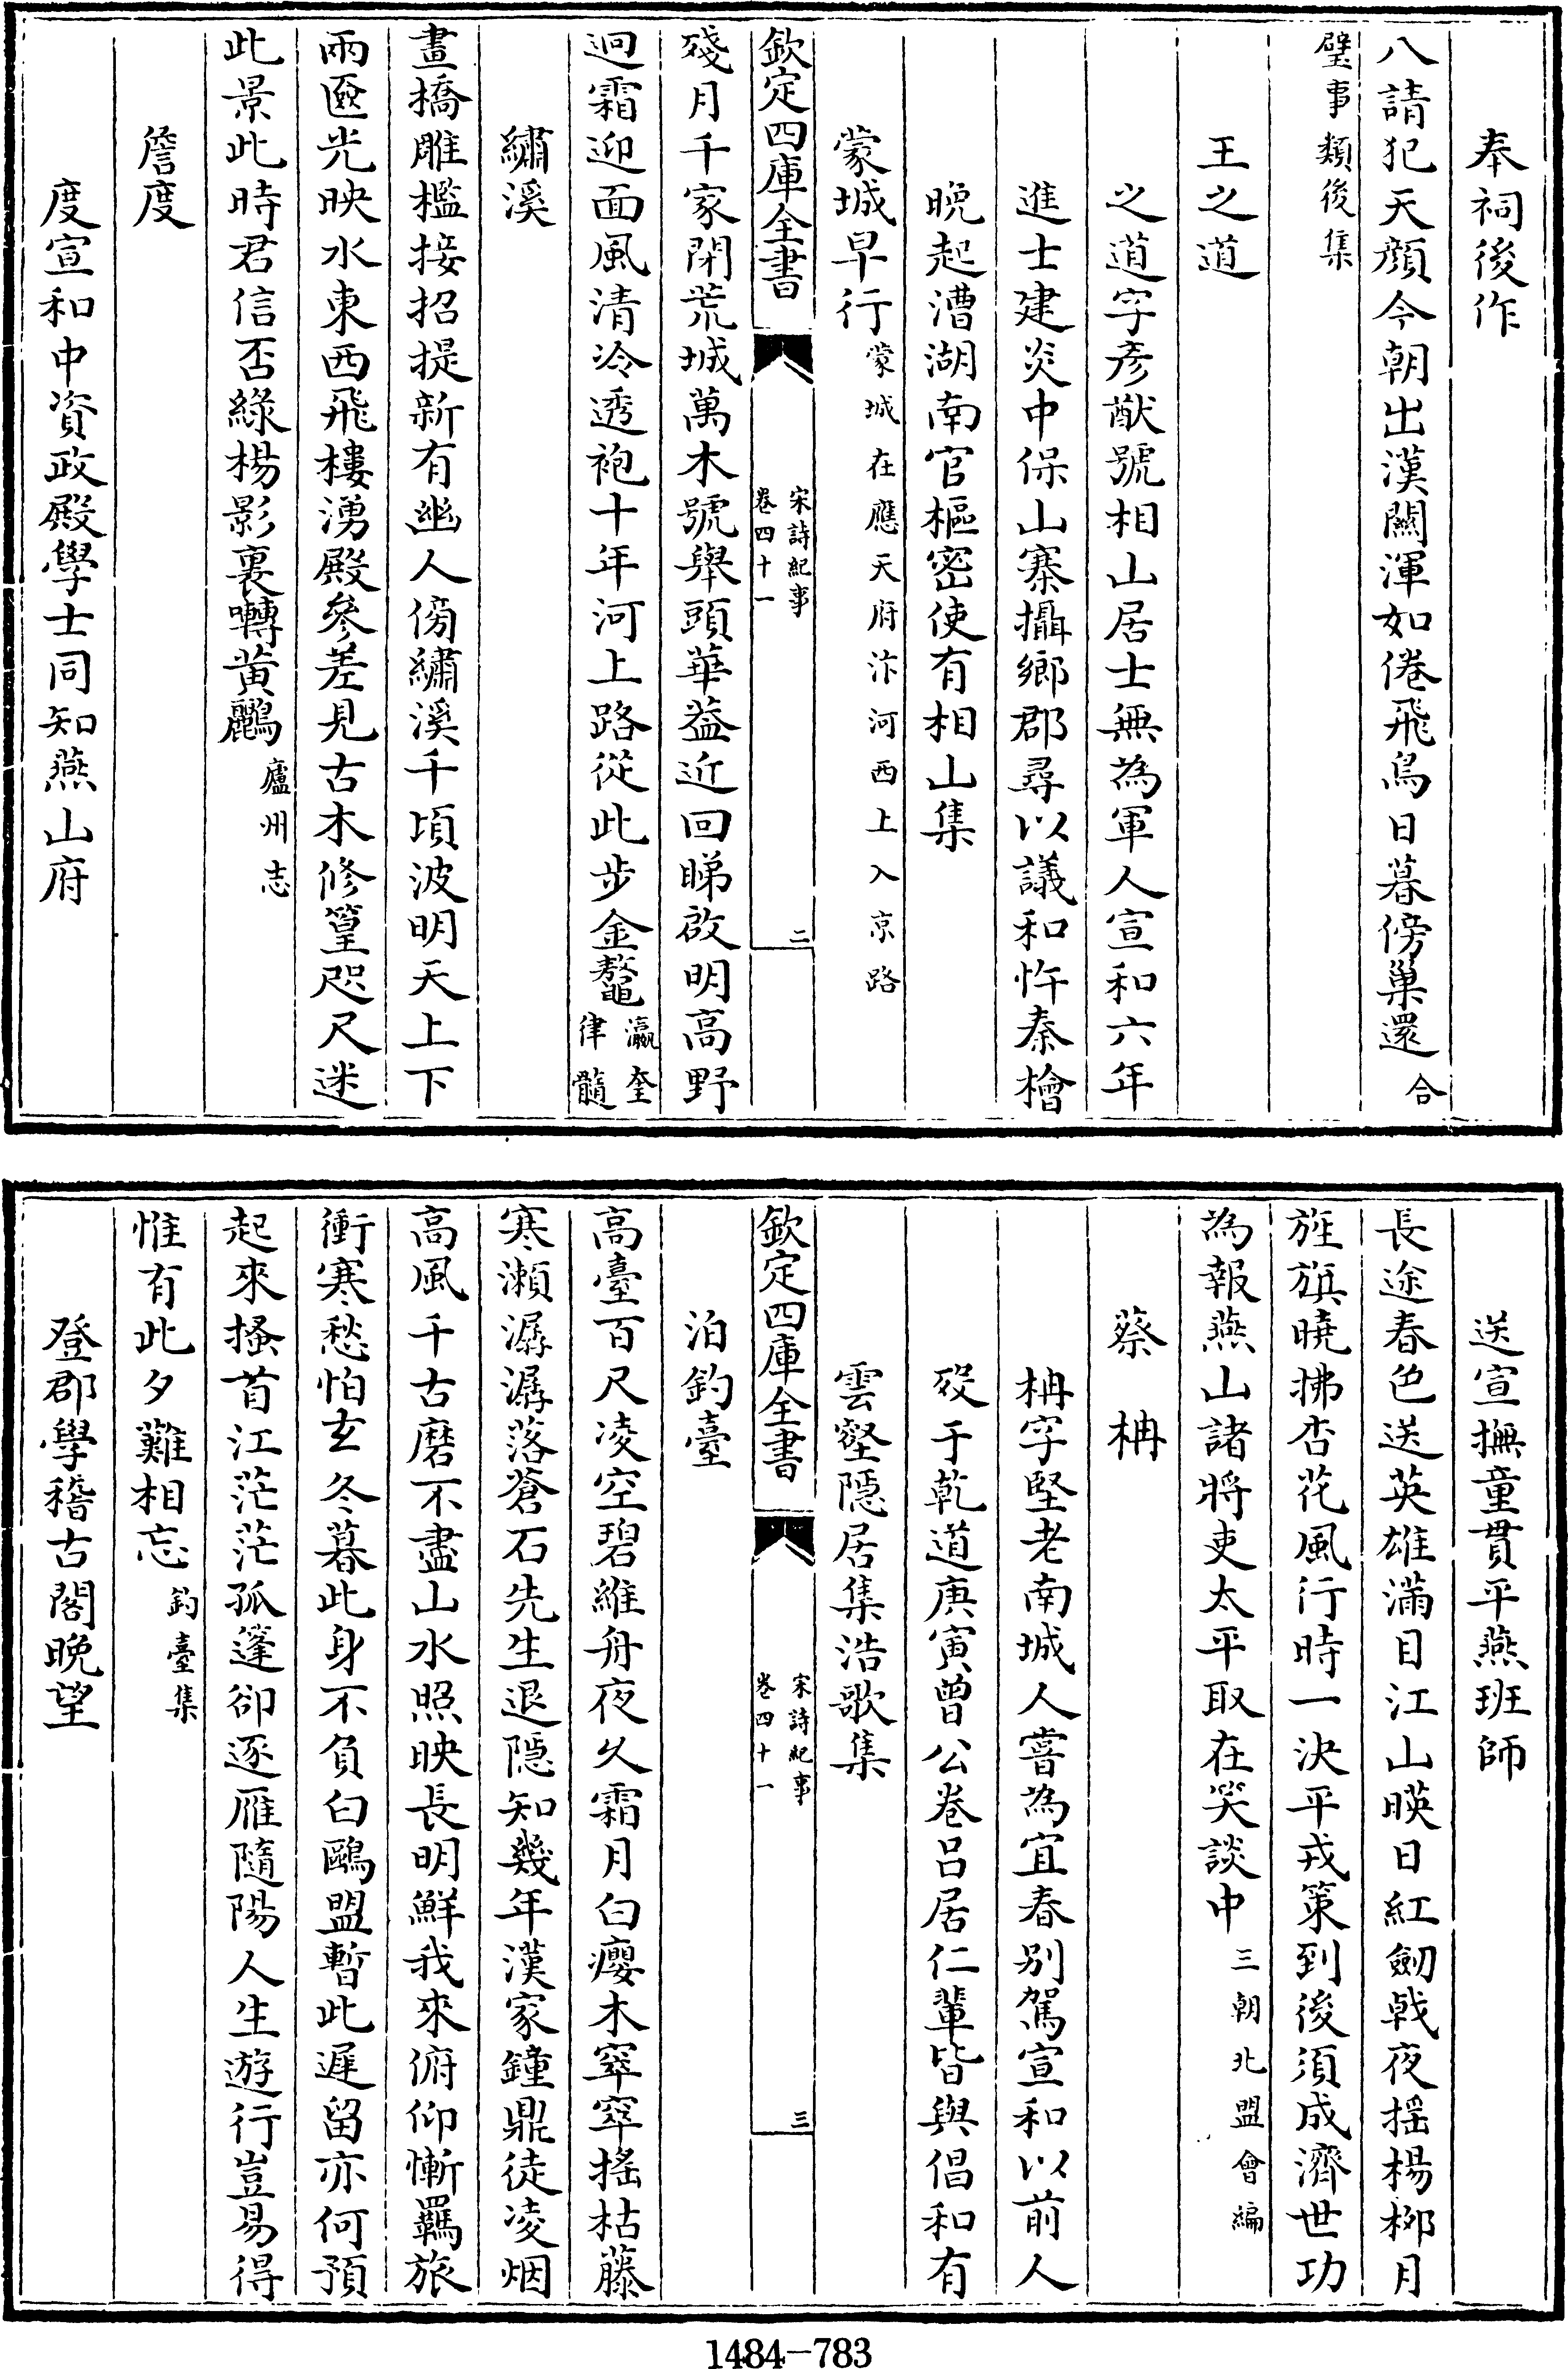 奉祠後作
八請犯天顔今朝出漢闗渾如倦飛鳥日暮傍巢還合
璧事類後集
王之道
之道字彦猷號相山居士無為軍人宣和六年
進士建炎中保山寨攝鄉郡尋以議和忤秦檜
晩起漕湖南官樞密使有相山集
蒙城早行蒙城在應天府汴河西上入京路
欽定四庫全書
宋詩紀事
卷四十一
二
殘月千家閉荒城萬木號舉頭華葢近回睇啟明高野
迥霜迎面風清冷透袍十年河上路從此步金鼇瀛奎
律髓
繡溪
畫橋雕檻接招提新有幽人傍繡溪千頃波明天上下
兩匳光映水東西飛樓湧殿參差見古木修篁咫尺迷
此景此時君信否綠楊影裏囀黃鸝廬州志
詹度
度宣和中資政殿學士同知燕山府
送宣撫童貫平燕班師
長途春色送英雄滿目江山暎日紅劒戟夜揺楊栁月
旌旗曉拂杏花風行時一決平戎策到後須成濟世功
為報燕山諸將吏太平取在笑談中三朝北盟會編
蔡柟
柟字堅老南城人嘗為宜春别駕宣和以前人
殁于乾道庚寅曾公卷吕居仁輩皆與倡和有
雲壑隠居集浩歌集
欽定四庫全書
宋詩紀事
卷四十一
三
泊釣臺
高臺百尺凌空碧維舟夜久霜月白癭木窣窣搖枯藤
寒瀬潺潺落蒼石先生退隠知幾年漢家鐘鼎徒凌烟
高風千古磨不盡山水照映長明鮮我來俯仰慚羈旅
衝寒愁怕玄冬暮此身不負白鷗盟暫此遲留亦何預
起來搔首江茫茫孤篷卻逐雁隨陽人生遊行豈易得
惟有此夕難相忘釣臺集
登郡學稽古閣晩望
1484-783